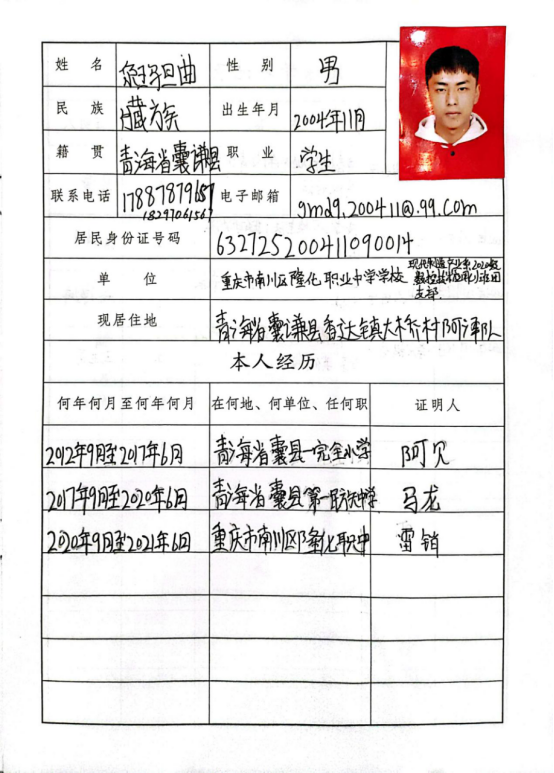 姓 名 尕玛旦曲 性 别 男
民 族 藏族 出生年月 2004年11月
籍 贯 青海省囊谦县 职 业 学生
联系电话 17887879657 电子邮箱 gmd9.200411@.99.com
18297061567
居民身份证号码 632725200411090014
单 位 重庆市南川区隆化职业中学学校
支部
现居住地 青海省囊谦县香达镇大桥村
本人经历
何年何月至何年何月 在何地、何单位、任何职 证明人
2012年9月至2017年6月 青海省囊县一完全小学 阿贝
2017年9月至2020年6月 青海省囊县第一民族中学 马龙
2020年9月至2021年6月 重庆市南川区隆化职中 雷销